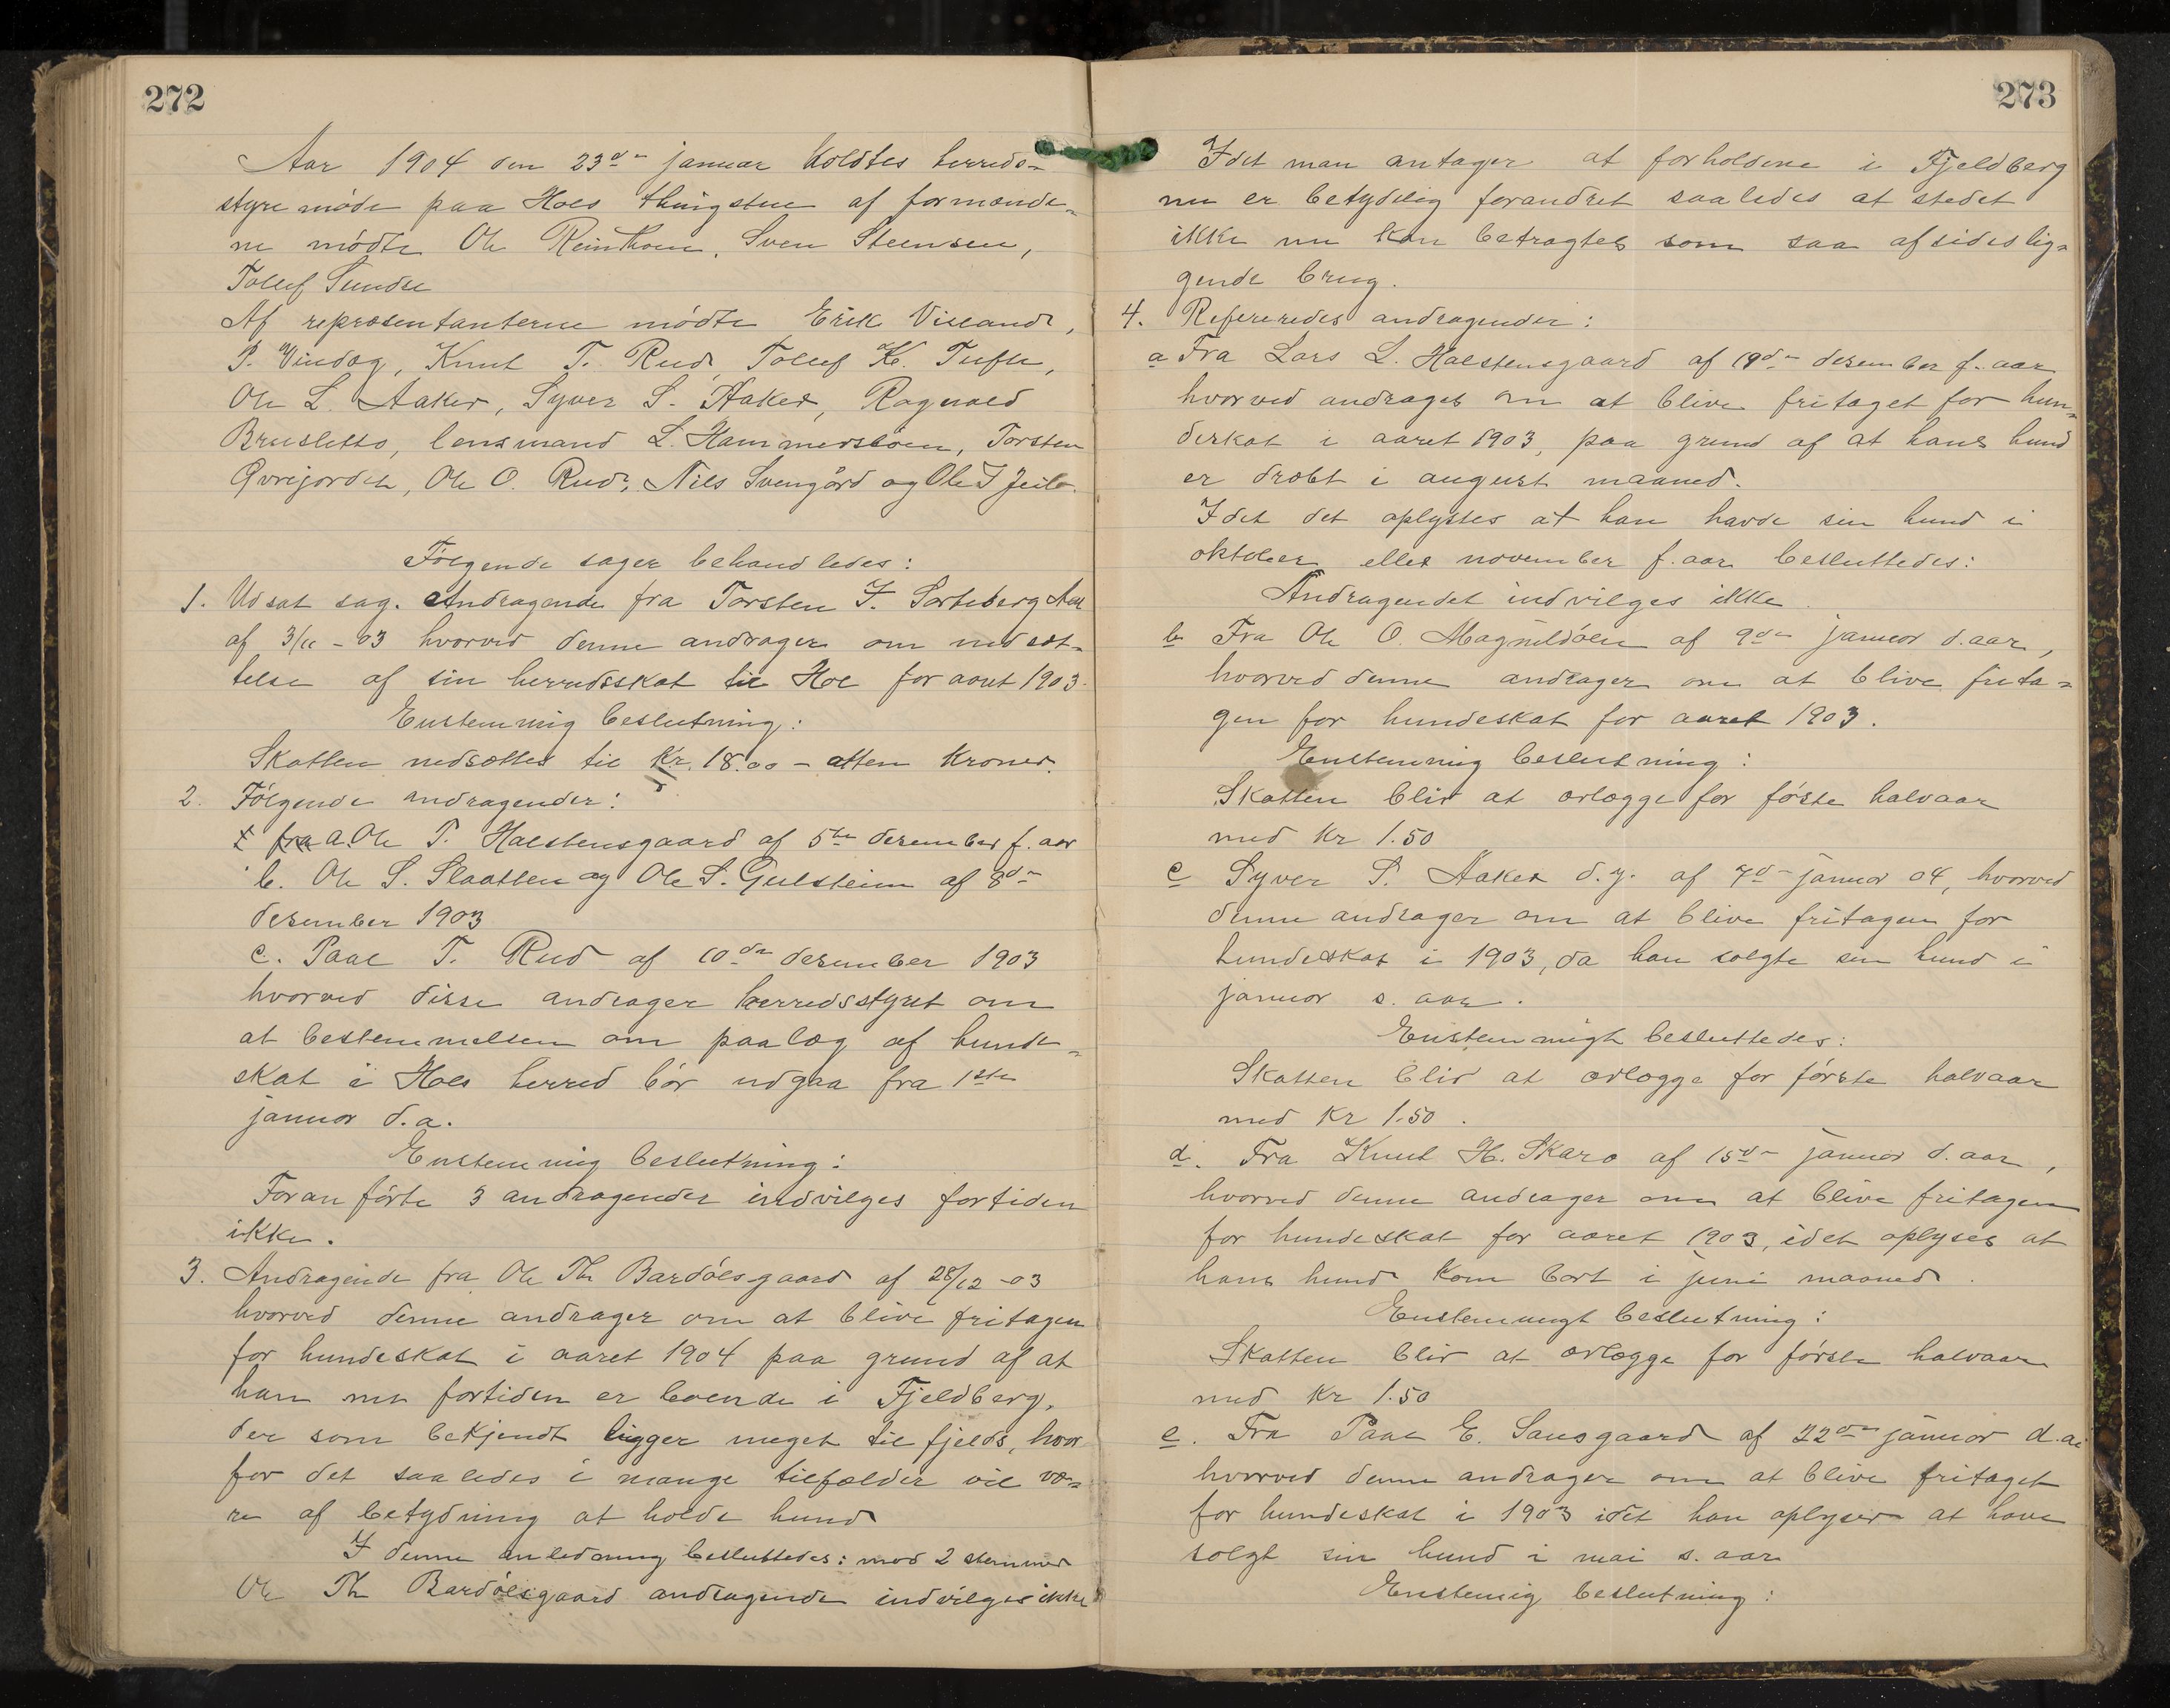 272
Aar 1904 den 23de januar holdtes herreds-
styremøde paa Hols thingstue af formænde-
ne mødte Ole Reinthon, Sven Steensen,
Tollef Sundre
Af repræsentanterne mødte Erik Villand,
P. Vindeg, Knut T. Rud, Tollef K. Tufte,
Ole L. Aaker, Syver S. Aaker, Ragnvald
Brusletto, lensmand L. Hammersbøen, Torsten
Øvrejorden, Ole O. Rud, Nils Svengård og Ole T Jeilo.
Følgende sager behandledes:
1. Udsat sag. Andragende fra Torsten T. Sorteberg Aal
af 3/11 - 03 hvorved denne andrager om nedsæt-
telse af sin herredsskat til Hol for aaret 1903.
Enstemmig beslutning:
Skatten nedsættes til Kr. 18.00 - atten Kroner.
2. Følgende andragender:
fra a. Ole T. Halstensgaard af 5te desember f. aar
b. Ole S. Slaatten og Ole S. Gulsteim af 8de
desember 1903
c. Paal T. Rud af 10de desember 1903
hvorved disse andrager herredsstyret om
at bestemmelsen om paalæg af hunde-
skat i Hols herred bør udgaa fra 1ste
januar d.a.
Enstemmig beslutning:
Foranførte 3 andragender indvilges fortiden
ikke.
3. Andragende fra Ole Th Bardølsgaard af 28/12 -03
hvorved denne andrager om at blive fritagen
for hundeskat i aaret 1904 paa grund af at
han nu fortiden er boende i Fjeldberg,
der som bekjendt ligger meget til fjelds, hvor
for det saaledes i mange tilfælder vil væ-
re af betydning at holde hund
I denne anledning besluttedes: mod 2 stemmer
Ole Th Bardølsgaard andragende indvilges ikke
273
Idet man antager at forholdene i Fjeldberg
nu er betydelig forandret saaledes at stedet
ikke nu kan betragtes som saa afsideslig-
gende brug.
4. Refereredes andragender:
a Fra Lars L. Halstensgaard af 19de desember f. aar
hvorved andrages om at blive fritaget for hun-
deskat i aaret 1903, paa grund af at hans hund
er dræbt i august maaned.
Idet det oplystes at han havde sin hund i
oktober eller november f. aar besluttedes:
Andragendet indvilges ikke.
b Fra Ole O. Magnildølen af 9de januar d. aar,
hvorved denne andrager om at blive frita-
gen for hundeskat for aaret 1903.
Enstemmig beslutning:
Skatten blir at ærlægge for første halvaar
med Kr 1.50
c Syver S. Aaker d.y. af 7de januar 04, hvorved
denne andrager om at blive fritagen for
hundeskat i 1903, da han solgte sin hund i
januar s. aar.
Enstemmigt besluttedes:
Skatten blir at ærlægge for første halvaar
med Kr 1.50.
d. Fra Knut H. Skaro af 15de januar d. aar,
hvorved denne andrager om at blive fritagen
for hundeskat for aaret 1903, idet oplyses at
hans hund kom bort i juni maaned.
Enstemmigt beslutning:
Skatten blir at ærlægge for første halvaar
med Kr 1.50
e. Fra Paal E. Sansgaard af 22de januar d.a.
hvorved denne andrager om at blive fritaget
for hundeskat i 1903 idet han oplyser at have
solgt sin hund i mai s. aar
Enstemig beslutning: